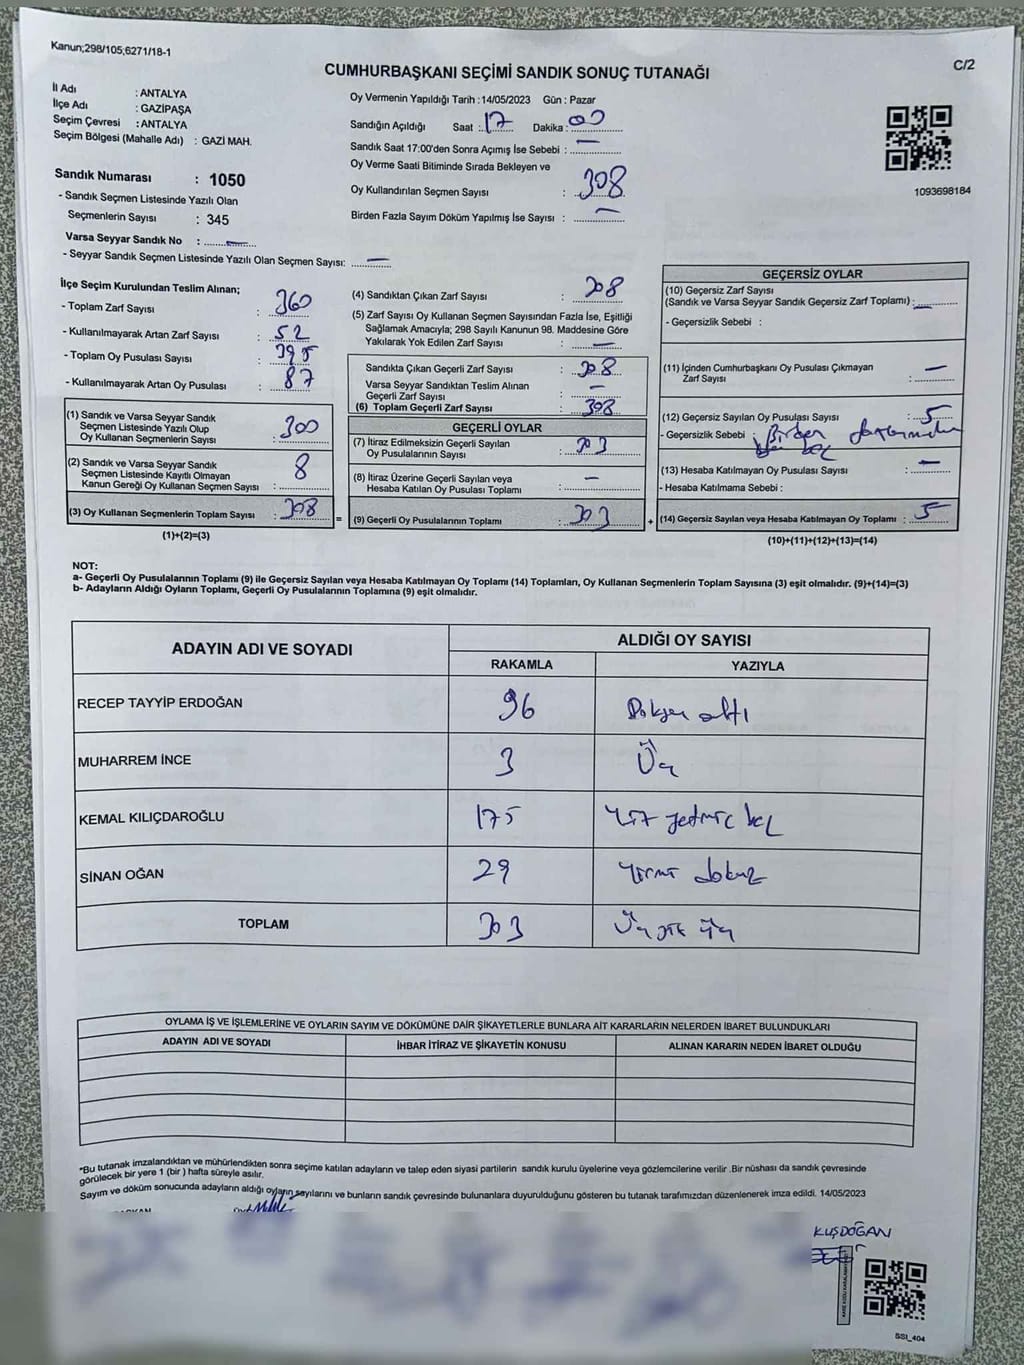 Kanun;298/105;6271/18-1
C/2
CUMHURBAŞKANI SEÇİMİ SANDIK SONUÇ TUTANAĞI
İl Adı : ANTALYA
İlçe Adı : GAZİPAŞA
Seçim Çevresi : ANTALYA
Seçim Bölgesi (Mahalle Adı) : GAZİ MAH.
Sandık Numarası : 1050
- Sandık Seçmen Listesinde Yazılı Olan
Seçmenlerin Sayısı : 345
Varsa Seyyar Sandık No : —
- Seyyar Sandık Seçmen Listesinde Yazılı Olan Seçmen Sayısı: —
Oy Vermenin Yapıldığı Tarih : 14/05/2023 Gün : Pazar
Sandığın Açıldığı Saat : 17 Dakika : 00
Sandık Saat 17:00'den Sonra Açımış İse Sebebi : —
Oy Verme Saati Bitiminde Sırada Bekleyen ve
Oy Kullandırılan Seçmen Sayısı : 308
Birden Fazla Sayım Döküm Yapılmış İse Sayısı : —
1093698184
İlçe Seçim Kurulundan Teslim Alınan;
- Toplam Zarf Sayısı : 360
- Kullanılmayarak Artan Zarf Sayısı : 52
- Toplam Oy Pusulası Sayısı : 395
- Kullanılmayarak Artan Oy Pusulası : 87
(1) Sandık ve Varsa Seyyar Sandık
Seçmen Listesinde Yazılı Olup
Oy Kullanan Seçmenlerin Sayısı : 300
(2) Sandık ve Varsa Seyyar Sandık
Seçmen Listesinde Kayıtlı Olmayan
Kanun Gereği Oy Kullanan Seçmen Sayısı : 8
(3) Oy Kullanan Seçmenlerin Toplam Sayısı : 308
(1)+(2)=(3)
(4) Sandıktan Çıkan Zarf Sayısı : 308
(5) Zarf Sayısı Oy Kullanan Seçmen Sayısından Fazla İse, Eşitliği
Sağlamak Amacıyla; 298 Sayılı Kanunun 98. Maddesine Göre
Yakılarak Yok Edilen Zarf Sayısı : —
Sandıkta Çıkan Geçerli Zarf Sayısı : 308
Varsa Seyyar Sandıktan Teslim Alınan
Geçerli Zarf Sayısı : —
(6) Toplam Geçerli Zarf Sayısı : 308
GEÇERLİ OYLAR
(7) İtiraz Edilmeksizin Geçerli Sayılan
Oy Pusulalarının Sayısı : 303
(8) İtiraz Üzerine Geçerli Sayılan veya
Hesaba Katılan Oy Pusulası Toplamı : —
= (9) Geçerli Oy Pusulalarının Toplamı : 303
GEÇERSİZ OYLAR
(10) Geçersiz Zarf Sayısı
(Sandık ve Varsa Seyyar Sandık Geçersiz Zarf Toplamı) : —
- Geçersizlik Sebebi :
(11) İçinden Cumhurbaşkanı Oy Pusulası Çıkmayan
Zarf Sayısı : —
(12) Geçersiz Sayılan Oy Pusulası Sayısı : 5
- Geçersizlik Sebebi Birden
(13) Hesaba Katılmayan Oy Pusulası Sayısı : —
- Hesaba Katılmama Sebebi :
+ (14) Geçersiz Sayılan veya Hesaba Katılmayan Oy Toplamı : 5
(10)+(11)+(12)+(13)=(14)
NOT:
a- Geçerli Oy Pusulalarının Toplamı (9) ile Geçersiz Sayılan veya Hesaba Katılmayan Oy Toplamı (14) Toplamları, Oy Kullanan Seçmenlerin Toplam Sayısına (3) eşit olmalıdır. (9)+(14)=(3)
b- Adayların Aldığı Oyların Toplamı, Geçerli Oy Pusulalarının Toplamına (9) eşit olmalıdır.
ADAYIN ADI VE SOYADI ALDIĞI OY SAYISI
RAKAMLA YAZIYLA
RECEP TAYYİP ERDOĞAN 96 Doksan altı
MUHARREM İNCE 3 Üç
KEMAL KILIÇDAROĞLU 175 Yüz yetmiş beş
SİNAN OĞAN 29 Yirmi dokuz
TOPLAM 303 Üç yüz üç
OYLAMA İŞ VE İŞLEMLERİNE VE OYLARIN SAYIM VE DÖKÜMÜNE DAİR ŞİKAYETLERLE BUNLARA AİT KARARLARIN NELERDEN İBARET BULUNDUKLARI
ADAYIN ADI VE SOYADI İHBAR İTİRAZ VE ŞİKAYETİN KONUSU ALINAN KARARIN NEDEN İBARET OLDUĞU
*Bu tutanak imzalandıktan ve mühürlendikten sonra seçime katılan adayların ve talep eden siyasi partilerin sandık kurulu üyelerine veya gözlemcilerine verilir .Bir nüshası da sandık çevresinde
görülecek bir yere 1 (bir ) hafta süreyle asılır.
Sayım ve döküm sonucunda adayların aldığı oyların sayılarını ve bunların sandık çevresinde bulunanlara duyurulduğunu gösteren bu tutanak tarafımızdan düzenlenerek imza edildi. 14/05/2023
KUŞDOĞAN
SSI_404